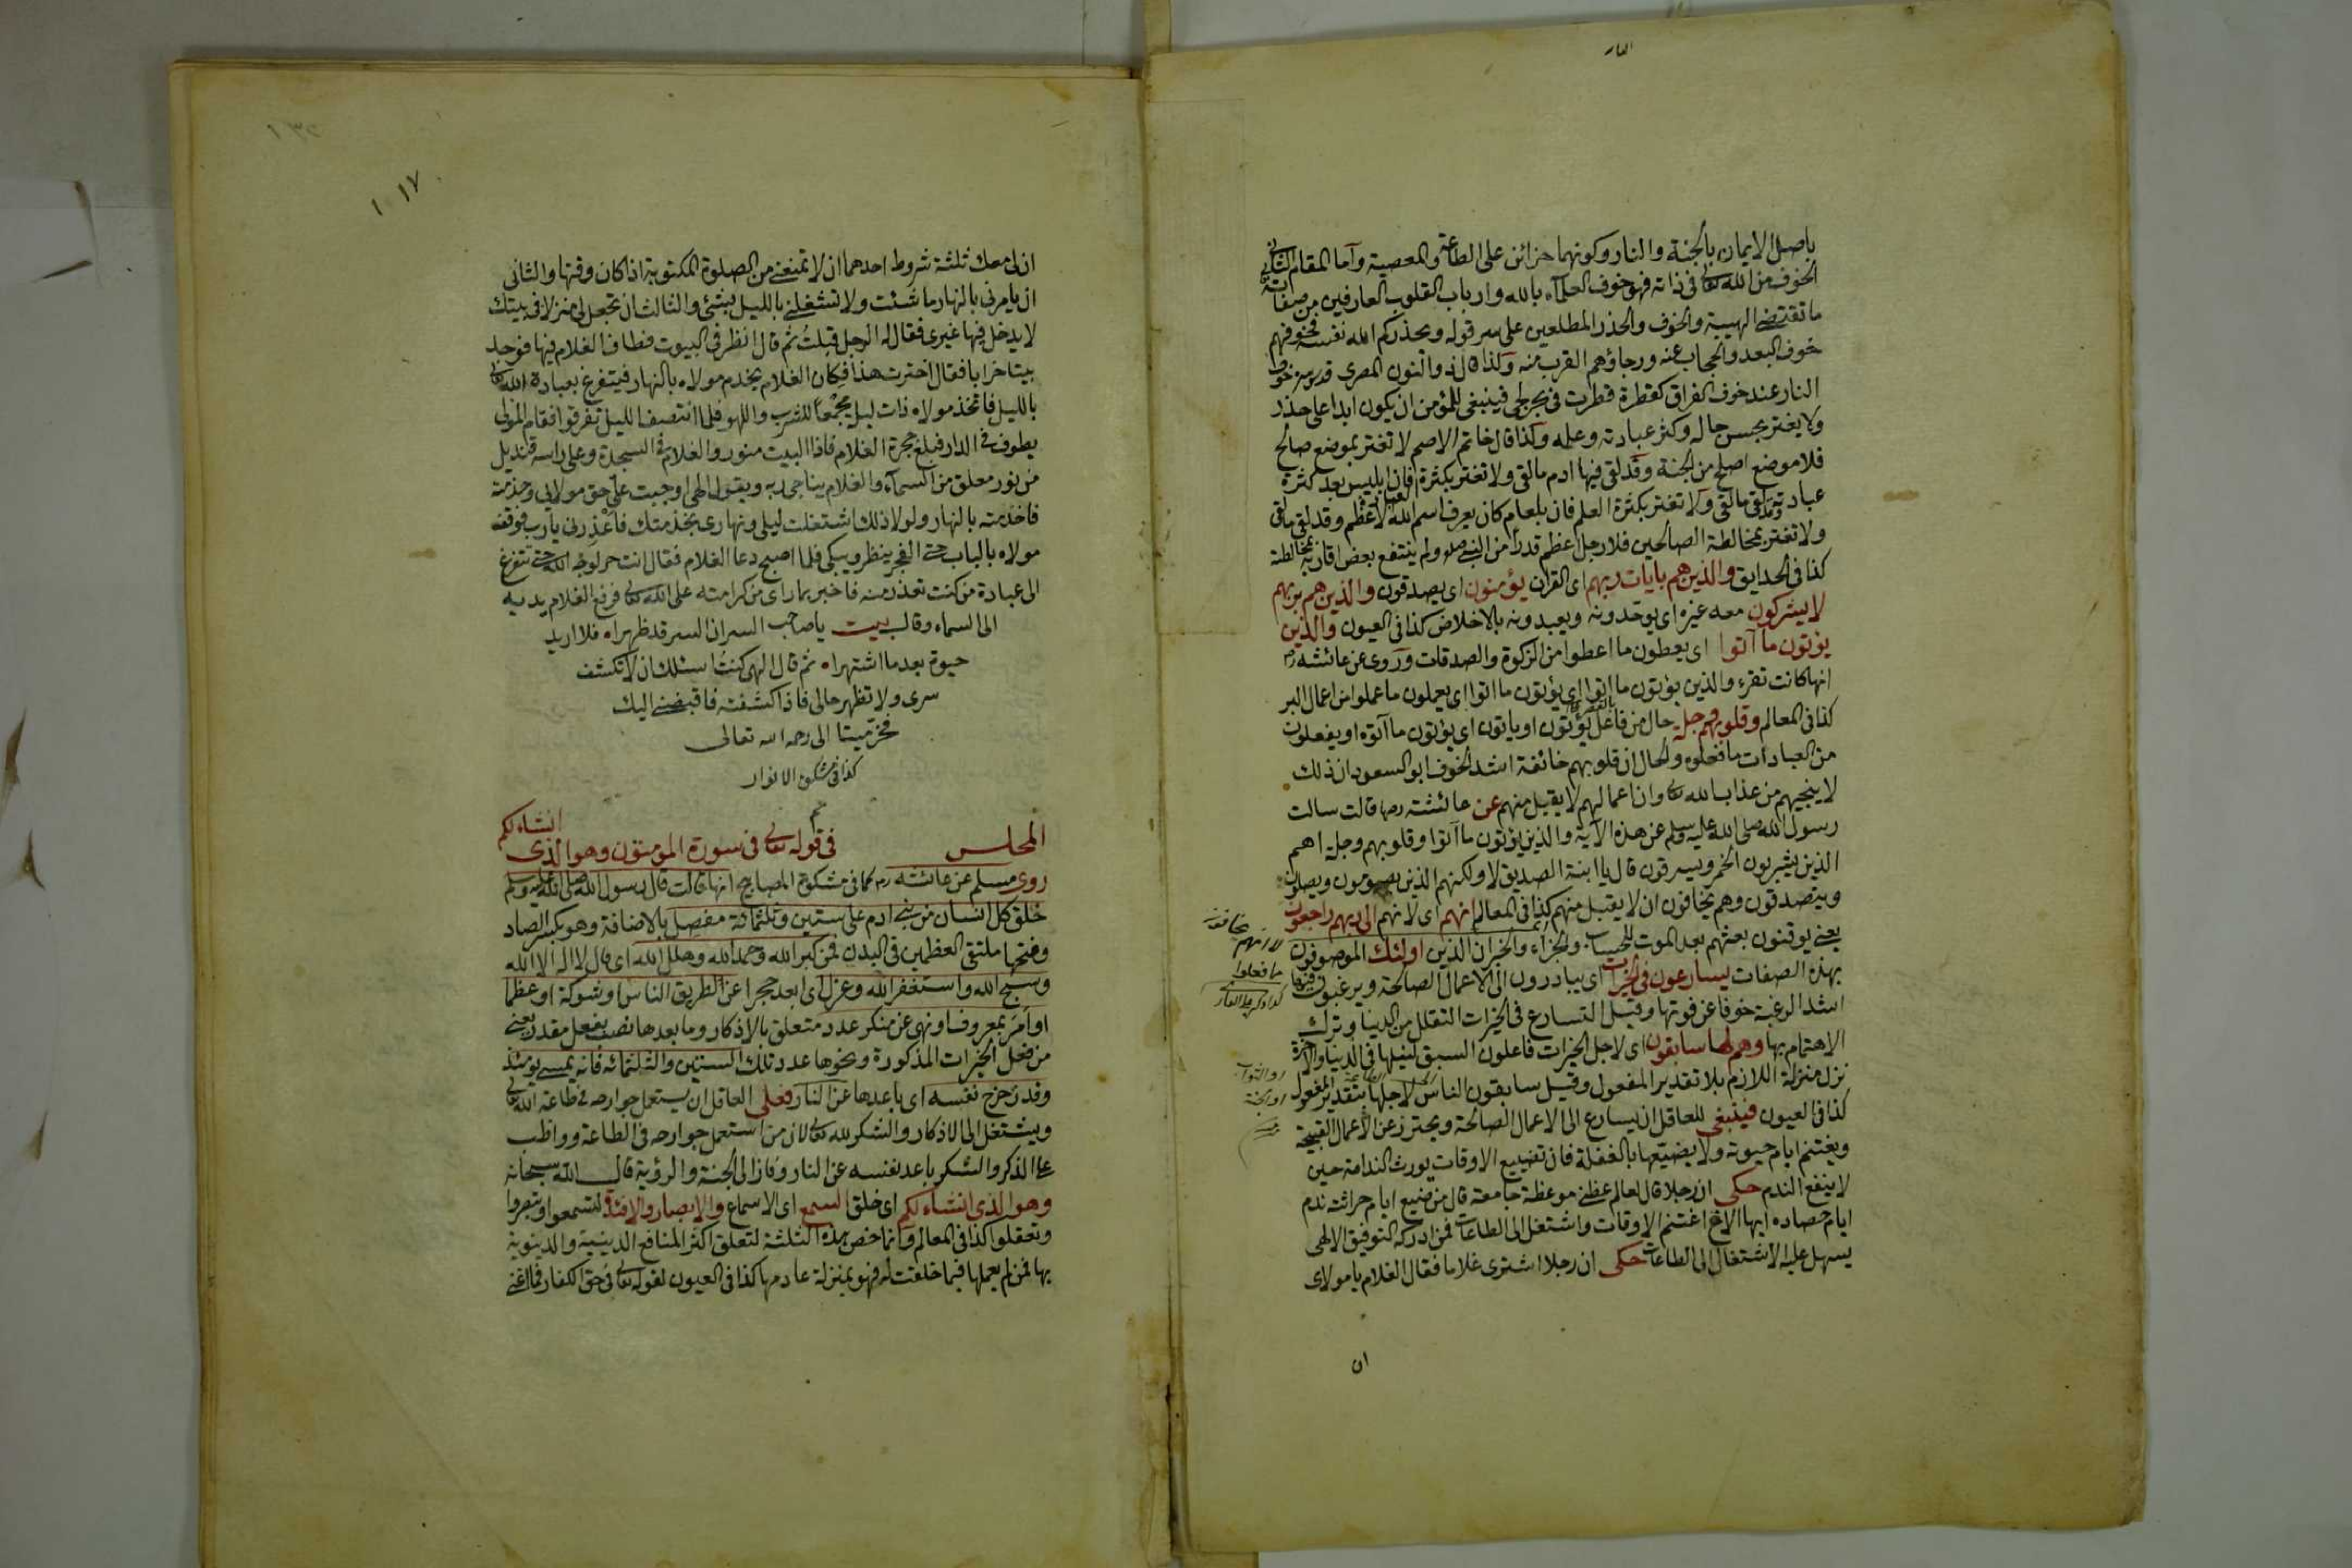 النار
باصل الايمان بالجنة والنار وكونهما جزائن على الطاعة والمعصية وآما المقام الثانى
الخوف من الله تعالى فى ذاته فهو خوف العلمآء بالله وارباب القلوب العارفين من صفاته
ما تقتضى الهيبة والخوف والحذر المطلعين على سر قوله ويحذركم الله نفسه فخوفهم
خوف البعد والحجاب عنه ورجاؤهم القرب منه ولذا قال ذو النون المصرى قدس سره خوف
النار عند خوف الفراق كقطرة قطرت فى بحر لجى فينبغى للمؤمن ان يكون ابدا على حذر
ولا يغتر بحسن حاله وكثر عبادته وعلمه وكذا قال خاتم الاصم لا تغتر بموضع صالح
فلا موضع اصلح من الجنة وقد لقى فيها ادم ما لقى ولا تغتر بكثرة العمل فان ابليس بعد كثرة
عبادته لقى ما لقى ولا تغتر بكثرة العلم فان بلعام كان يعرف اسم الله الاعظم وقد لقى ما لقى
ولا تغتر بمخالطة الصالحين فلا رجل اعظم قدرا من النبى صلعم ولم ينتفع بعض اقاربه بمخالطته
كذا فى الحدايق والذين هم بايات ربهم اى القران يؤمنون اى يصدقون والذين هم بربهم
لا يشركون معه غيره اى يوحدونه ويعبدونه بالاخلاص كذا فى العيون والذين
يؤتون ما آتوا اى يعطون ما اعطوا من الزكوة والصدقات وروى عن عائشه رض
انها كانت تقرء والذين يؤتون ما اتوا اى يؤتون ما اتوا اى يعملون ما عملوا من اعمال البر
كذا فى المعالم وقلوبهم وجلة حال من فاعل يؤتون او ياتون اى يؤتون ما آتوه او يفعلون
من العبادات ما فعلوه والحال ان قلوبهم خائفة اشد الخوف ابو السعود ان ذلك
لا ينجيهم من عذاب الله تعالى وان اعمالهم لا يقبل منهم عن عائشة رضها قالت سالت
رسول الله صلى الله عليه وسلم عن هذه الآية والذين يؤتون ما آتوا وقلوبهم وجلة اهم
الذين يشربون الخمر ويسرقون قال يا ابنة الصديق لا ولكنهم الذين يصومون ويصلون
ويتصدقون وهم يخافون ان لا يقبل منهم كذا فى المعالم انهم اى لانهم الى ربهم راجعون
يعنى يوقنون بعثهم بعد الموت للحساب والجزاء والخبر ان الذين اولئك الموصوفون
بهذه الصفات يسارعون فى الخيرات اى يبادرون الى الاعمال الصالحة ويرغبون فيها
اشد الرغبة خوفا عن فوتها وقيل التسارع فى الخيرات التقلل من الدنيا وترك
الاهتمام بها وهم لها سابقون اى لاجل الخيرات فاعلون السبق لنيلها فى الدنيا والاخرة
نزل منزلة اللازم بلا تقدير المفعول وقيل سابقون الناس لاجلها بتقدير المفعول
كذا فى العيون فينبغى للعاقل ان يسارع الى الاعمال الصالحة ويحترز عن الاعمال القبيحة
ويغتنم ايام حيوته ولا يضيعها بالغفلة فان تضييع الاوقات يورث الندامة حين
لا ينفع الندم حكى ان رجلا قال لعالم عظنى موعظة جامعة قال من ضيع ايام حراثته ندم
ايام حصاده ايها الاخ اغتنم الاوقات واشتغل الى الطاعات فمن ادركه التوفيق الالهى
يسهل عليه الاشتغال الى الطاعات حكى ان رجلا اشترى غلاما فقال الغلام يا مولاى
ان
لانهم خائفون
ما فعلوا
١٧
ان لى معك ثلثة شروط احدهما ان لا تمنعنى من الصلوة المكتوبة اذا كان وقتها والثانى
ان يامرنى بالنهار ما شئت ولا تشغلنى بالليل بشئ والثالث ان تجعل لى منزلا فى بيتك
لا يدخل فيها غيرى فقال له الرجل قبلتُ ثم قال انظر فى البيوت فطاف الغلام فيها فوجد
بيتا خرابا فقال اخترت هذا فكان الغلام يخدم مولاه بالنهار فيتفرغ بعبادة الله تعالى
بالليل فاتخذ مولاه ذات ليل مجمعا للشرب واللهو فلما انتصف الليل تفرقوا فقام المولى
يطوف فى الدار فبلغ حجرة الغلام فاذا البيت منور والغلام فى السجدة وعلى راسه قنديل
من نور معلق من السمآء والغلام يناجى ربه ويقول الهى اوجبت علىّ حق مولايى وخدمته
فاخدمته بالنهار ولولا ذلك اشتغلت ليلى ونهارى بخدمتك فاعْذِرنى يا رب فوقف
مولاه بالباب حتى الفجر ينظر ويبكى فلما اصبح دعا الغلام فقال انت حر لوجه الله حتى تتفرغ
الى عبادة من كنت تعذر منه فاخبر بما راى من كرامته على الله تعالى فرفع الغلام يديه
الى السماء وقال بيت يا صاحب السر ان السر قد ظهراه فلا اريد
حيوة بعد ما اشتهراه ثم قال الهى كنتُ اسئلك ان لا تكشف
سرى ولا تظهر حالى فاذا كشفته فاقبضنى اليك
فخرّ ميتا الى رحمه الله تعالى
كذا فى مشكوة الانوار
تم
المجلس فى قوله تعالى فى سورة المؤمنون وهو الذى انشاء لكم
روى مسلم عن عائشه رض كما فى مشكوة المصابيح انها قالت قال رسول الله صلى الله عليه وسلم
خلق كل انسان من بنى ادم على ستين وثلثمائة مفصل بالاضافة وهو بكسر الصاد
وفتحها ملتقى العظمين فى البدن فمن كبر الله وحمد الله وهلل الله اى قال لا اله الا الله
وسبح الله واستغفر الله وعزل اى ابعد حجرا عن الطريق الناس او شوكة او عظما
او امَرَ بمعروف او نهى عن منكر عدد متعلق بالاذكار وما بعدها نصب بفعل مقدر يعنى
من فعل الخيرات المذكورة ونحوها عدد تلك الستين والثلثمائه فانه يمسى يومئذ
وقد زحزح نفسه اى باعدها عن النار فعلى العاقل ان يستعمل جوارحه فى طاعة الله تعالى
ويشتغل الى الاذكار والشكر لله تعالى لان من استعمل جوارحه فى الطاعة وواظب
على الذكر والشكر باعد نفسه عن النار وفاز الى الجنة والرؤية قال الله سبحانه
وهو الذى انشاء لكم اى خلق السمع اى الاسماع والابصار والافئدة لتسمعوا وتبصروا
وتعقلوا كذا فى المعالم وانما خص بهذه الثلثة لتعلق اكثر المنافع الدينية والدنيوية
بها فمن لم يعملها فيما خلقت له فهو بمنزلة عادمها كذا فى العيون لقوله تعالى فى حق الكفار فما اغنى